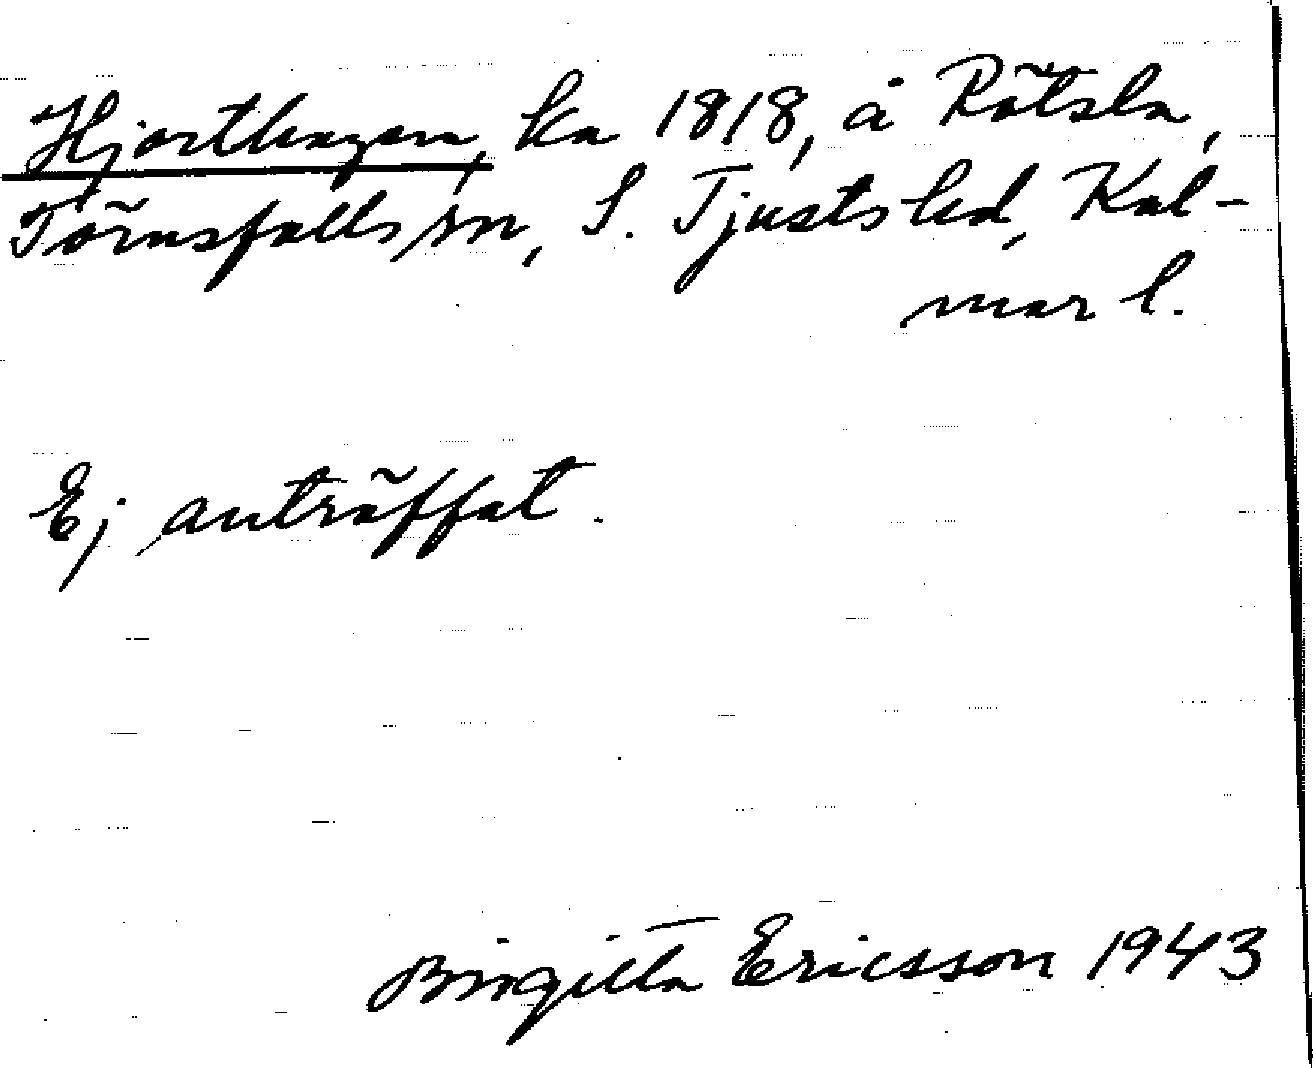 Hjorthagen, ha 1818, å Rötsla,
Törnsfalls sn, S. Tjusts hd, Kal-
mar l.
Ej anträffat.
Birgitta Ericsson 1943